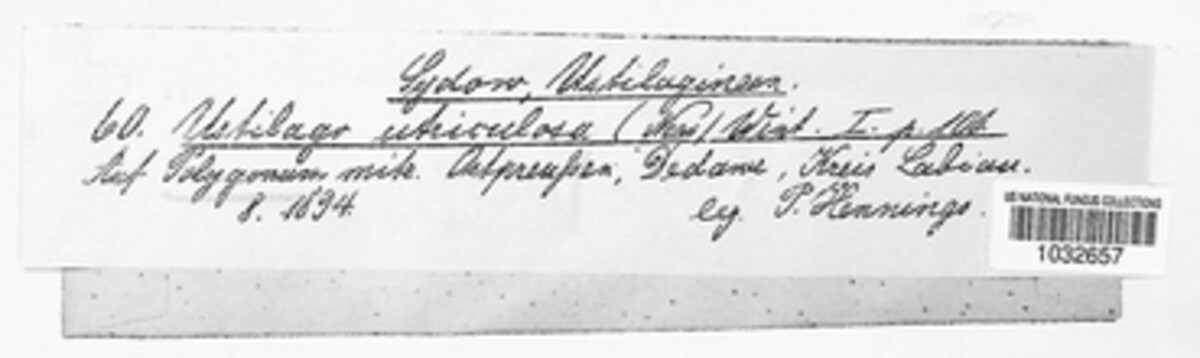 Sydow, Ustilagineen.
60. Ustilago utriculosa (Nees) Wint. I. p. 100
Auf Polygonum mite. Ostpreußen, Dedawe, Kreis Labiau.
8. 1894.
leg. P. Hennings.
US NATIONAL FUNGUS COLLECTIONS
1032657